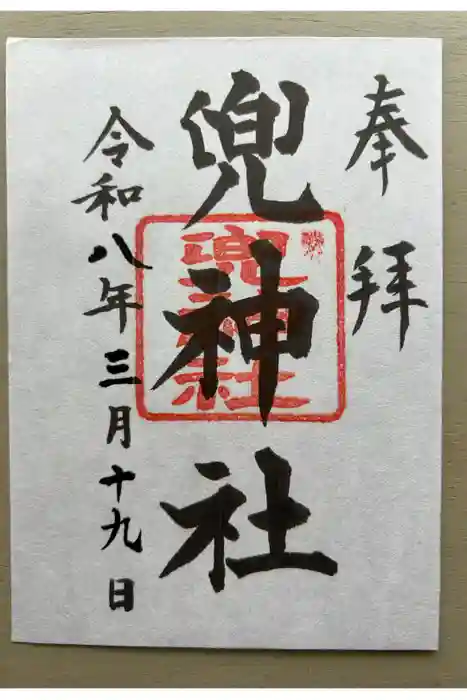 奉拝
兜神社
兜神社
令和八年三月十九日